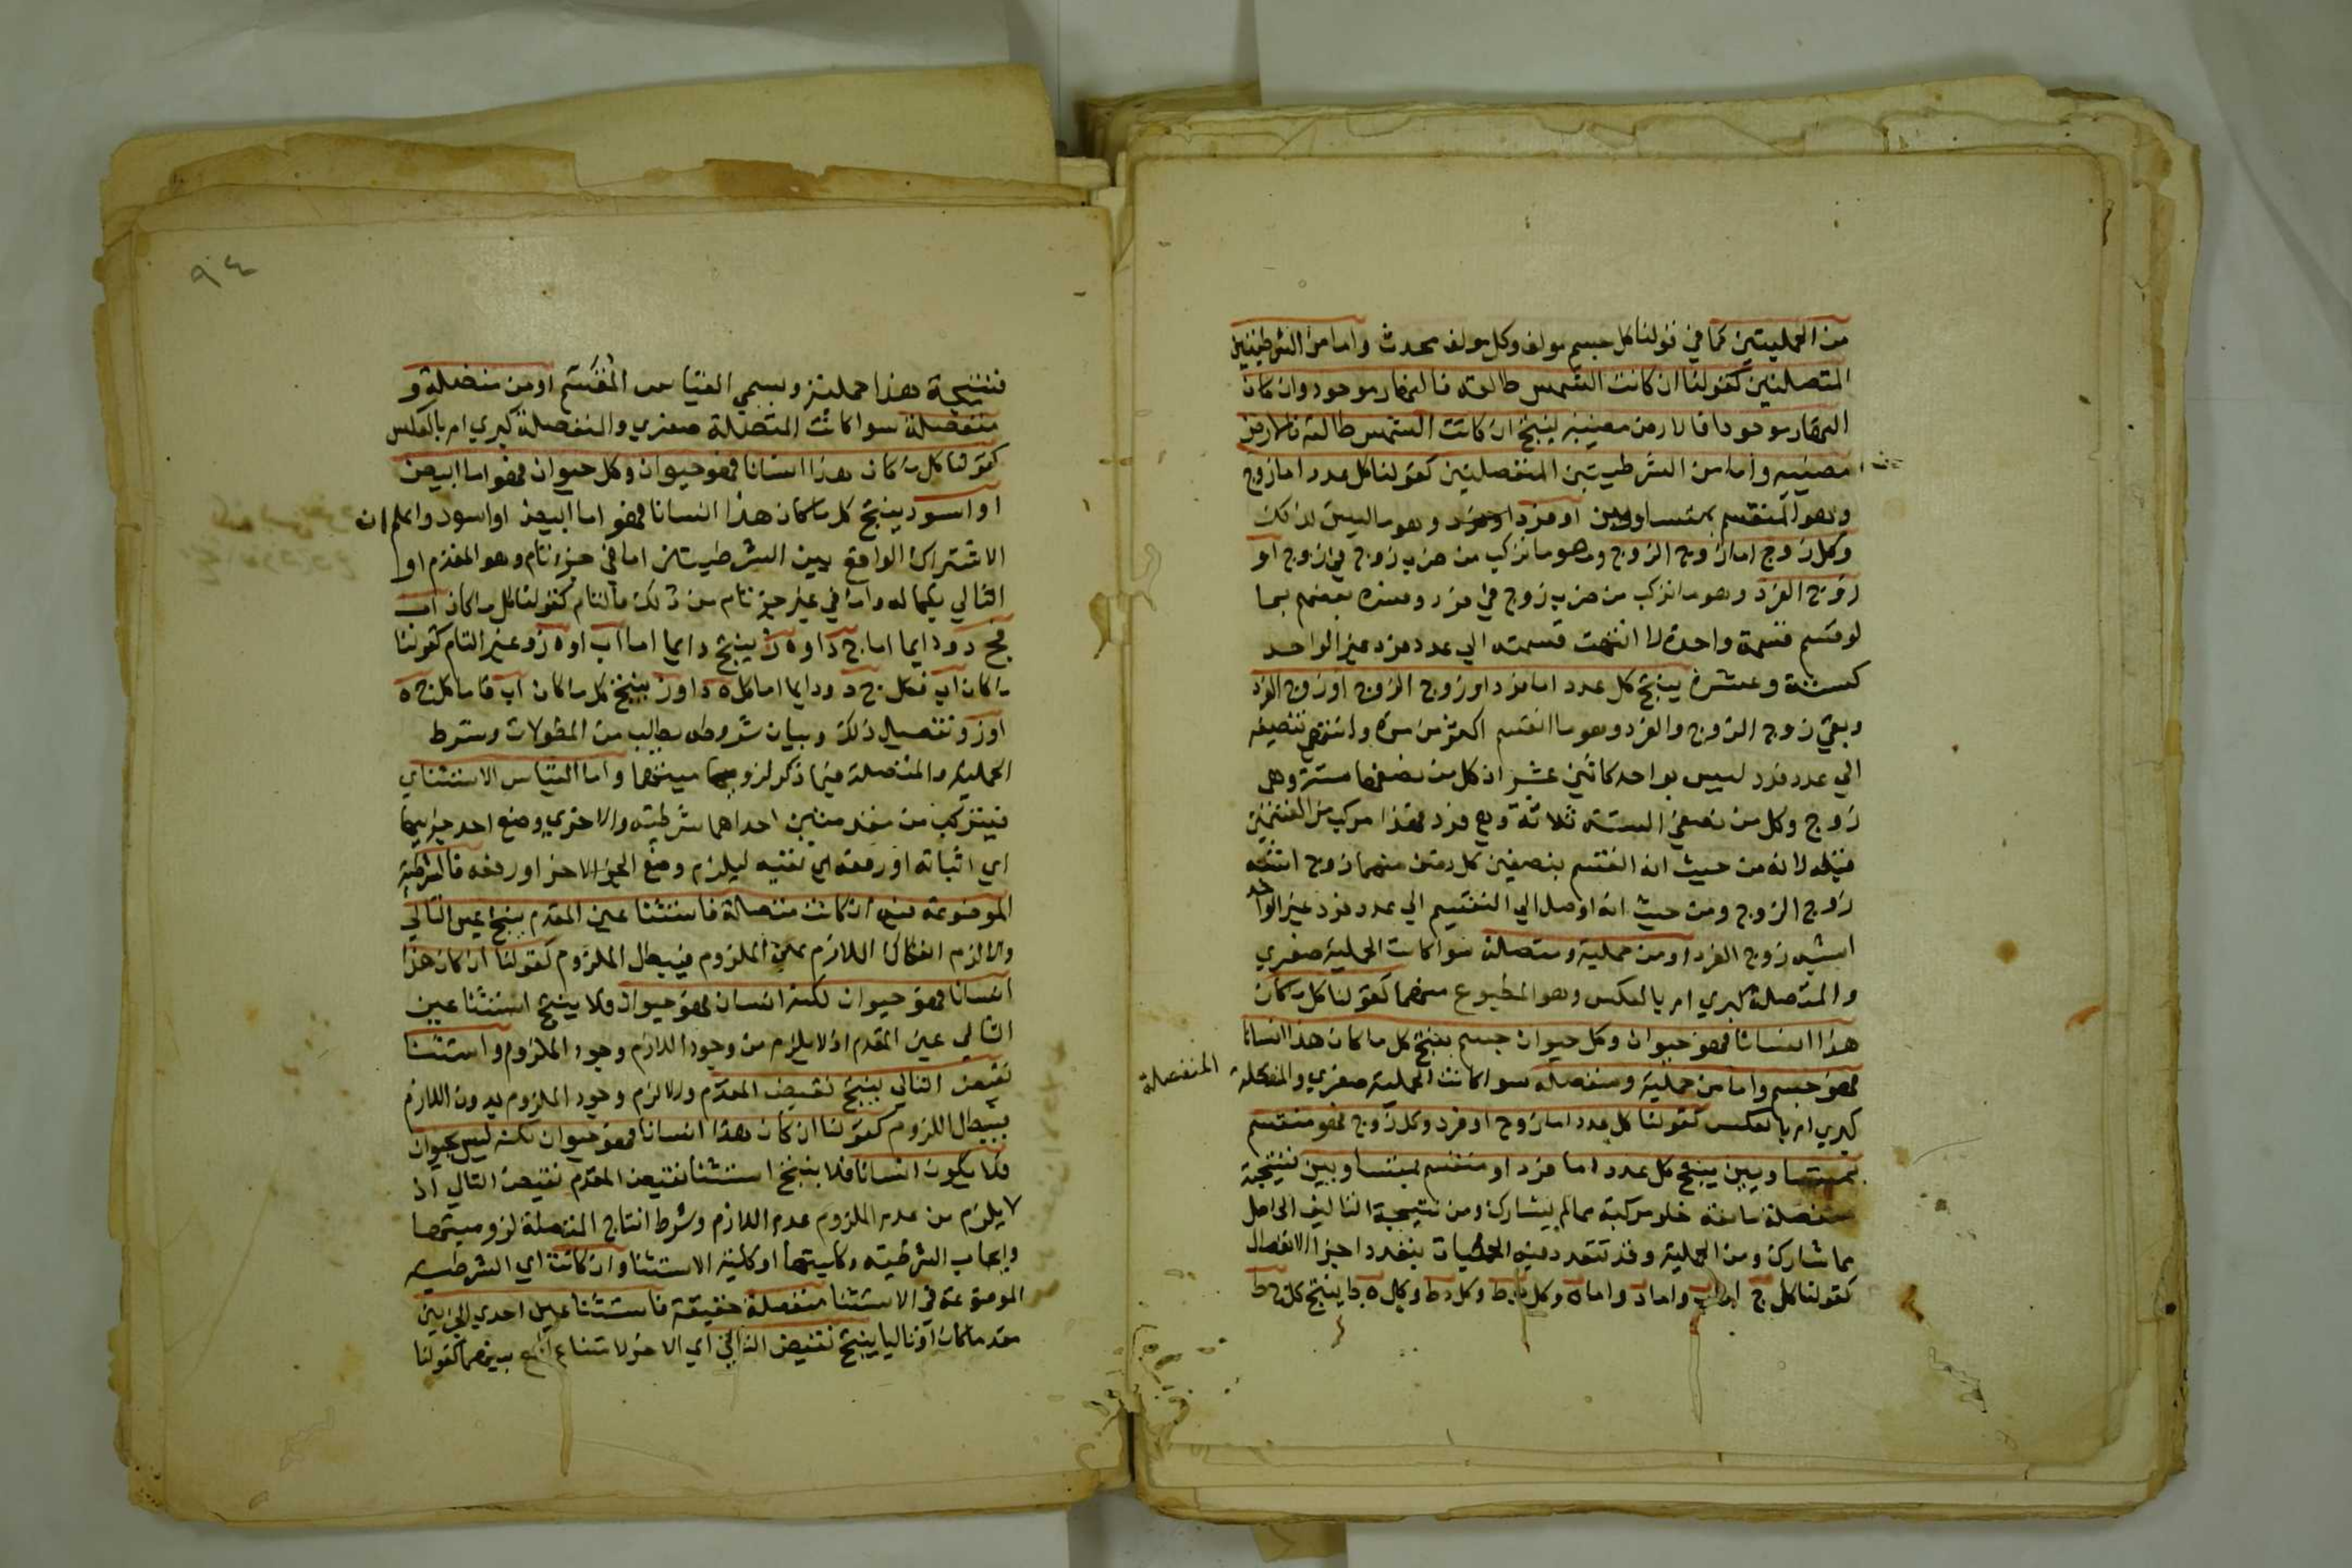 من الحمليتين كما في قولنا كل جسم مولف وكل مولف محدث واما من الشرطيتين
المتصلتين كقولنا ان كانت الشمس طالعة فالنهار موجود وان كان
النهار موجودا فالارض مضيئة ينتج ان كانت الشمس طالعة فالارض
مضيئه واما من الشرطيتين المنفصلتين كقولنا كل عدد اما زوج
وهو المنقسم بمتساويين او فرد وهو ما ليس كذلك
وكل زوج اما زوج الزوج وهو ما تركب من ضرب زوج في زوج او
زوج الفرد وهو ما تركب من ضرب زوج في فرد وفسره بعضهم بما
لو قسم قسمة واحدة لا انتهت قسمته الي عدد فرد غير الواحد
كستة وعشرة ينتج كل عدد اما فرد او زوج الزوج او زوج الفرد
وبقي زوج الزوج والفرد وهو ما انقسم اكثر من مرة وانتهي تنصيفه
الي عدد فرد ليس بواحد كاثني عشر ان كل من نصفها ستة وهي
زوج وكل من نصفي الستة ثلاثة وهي فرد فهذا مركب من القسمين
قبله لانه من حيث انه انقسم بنصفين كل منهما زوج اشبه
زوج الزوج ومن حيث انه اوصل الي التقسيم الي عدد فرد غير الواحد
اشبه زوج الفرد او من حملية ومتصلة سوا كانت الحملية صغري
والمتصلة كبري ام بالعكس وهو المطبوع منهما كقولنا كل ما كان
هذا انسانا فهو حيوان وكل حيوان جسم ينتج كل ما كان هذا انسانا
فهو جسم واما من حملية ومنفصلة سوا كانت الحملية صغري والمنفصلة
المنفصلة
كبري ام بالعكس كقولنا كل عدد اما زوج او فرد وكل زوج فهو منقسم
بمتساويين ينتج كل عدد اما فرد او منقسم بمتساويين نتيجة
منفصلة مانعة خلو مركبة مما لم يشارك ومن نتيجة التاليف الحاصل
مما شارك ومن الحملية وقد تتعدد فيه الحمليات بتعدد اجزا الانفصال
كقولنا كل ج اما ب واما د واما ه وكل ب ط وكل د ط وكل ه ط ينتج كل ج ط
٩٤
فنتيجة هذا حملية ويسمي القياس المقسم او من متصلة و
منفصلة سوا كانت المتصلة صغري والمنفصلة كبري ام بالعكس
كقولنا كل ما كان هذا انسانا فهو حيوان وكل حيوان فهو اما ابيض
او اسود ينتج كل ما كان هذا انسانا فهو اما ابيض او اسود واعلم ان
الاشتراك الواقع بين الشرطيتين اما في جزء تام وهو المقدم او
التالي بكماله واما في غير جزء تام من ذلك فالتام كقولنا كل ما كان اب
فج د ودايما اما ج د او ه ز ينتج دايما اما اب او ه ز وغير التام كقولنا
ما كان اب فكل ج د ودايما اما كل ه د او ز ينتج كل ما كان اب فاما كل ج ه
او ز وتفصيل ذلك وبيان شروطه يطلب من المطولات وشرط
الحملية والمتصلة فيما ذكر لزوميتهما واما القياس الاستثناي
فيتركب من مقدمتين احداهما شرطية والاخري وضع احد جزييها
اي اثباته او رفعه اي نفيه ليلزم وضع الجزء الاخر او رفعه فالشرطية
الموضوعة فيه ان كانت متصلة فاستثنا عين المقدم ينتج عين التالي
والا لزم انفكاك اللازم عن الملزوم فيبطل الملزوم كقولنا ان كان هذا
انسانا فهو حيوان لكنه انسان فهو حيوان ولا ينتج استثنا عين
التالي عين المقدم اذ لا يلزم من وجود اللازم وجود الملزوم واستثنا
نقيض التالي ينتج نقيض المقدم والا لزم وجود الملزوم بدون اللازم
فيبطل اللزوم كقولنا ان كان هذا انسانا فهو حيوان لكنه ليس بحيوان
فلا يكون انسانا فلا ينتج استثنا نقيض المقدم نقيض التالي اذ
لا يلزم من عدم الملزوم عدم اللازم وشرط انتاج المتصلة لزوميتها
وايجاب الشرطية وكليتها او كلية الاستثنا وان كانت اي الشرطية
الموضوعة في الاستثنا منفصلة حقيقة فاستثنا عين احدي الجزئين
مقدما كان او تاليا ينتج نقيض التالي اي الاخر لامتناع الجمع بينهما كقولنا